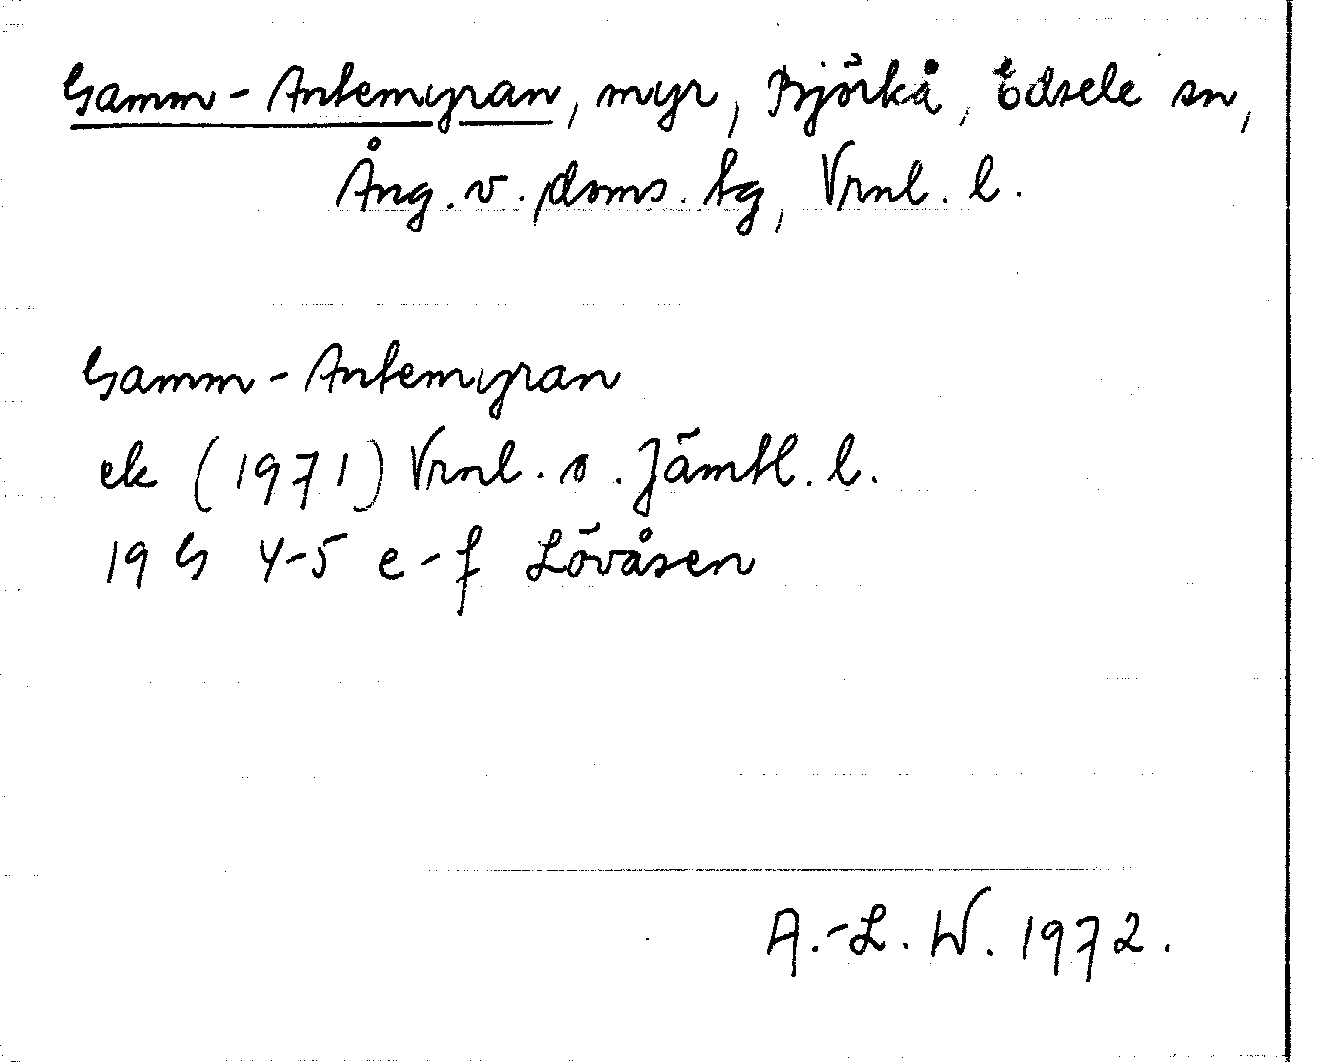 Gamm-Antemyran, myr, Björkå, Edsele sn,
Ång. v. doms. tg, Vrnl. l.
Gamm-Antemyran
ek (1971) Vrnl. o. Jämtl. l.
19 G 4-5 e-f Lövåsen
A.-L. W. 1972.